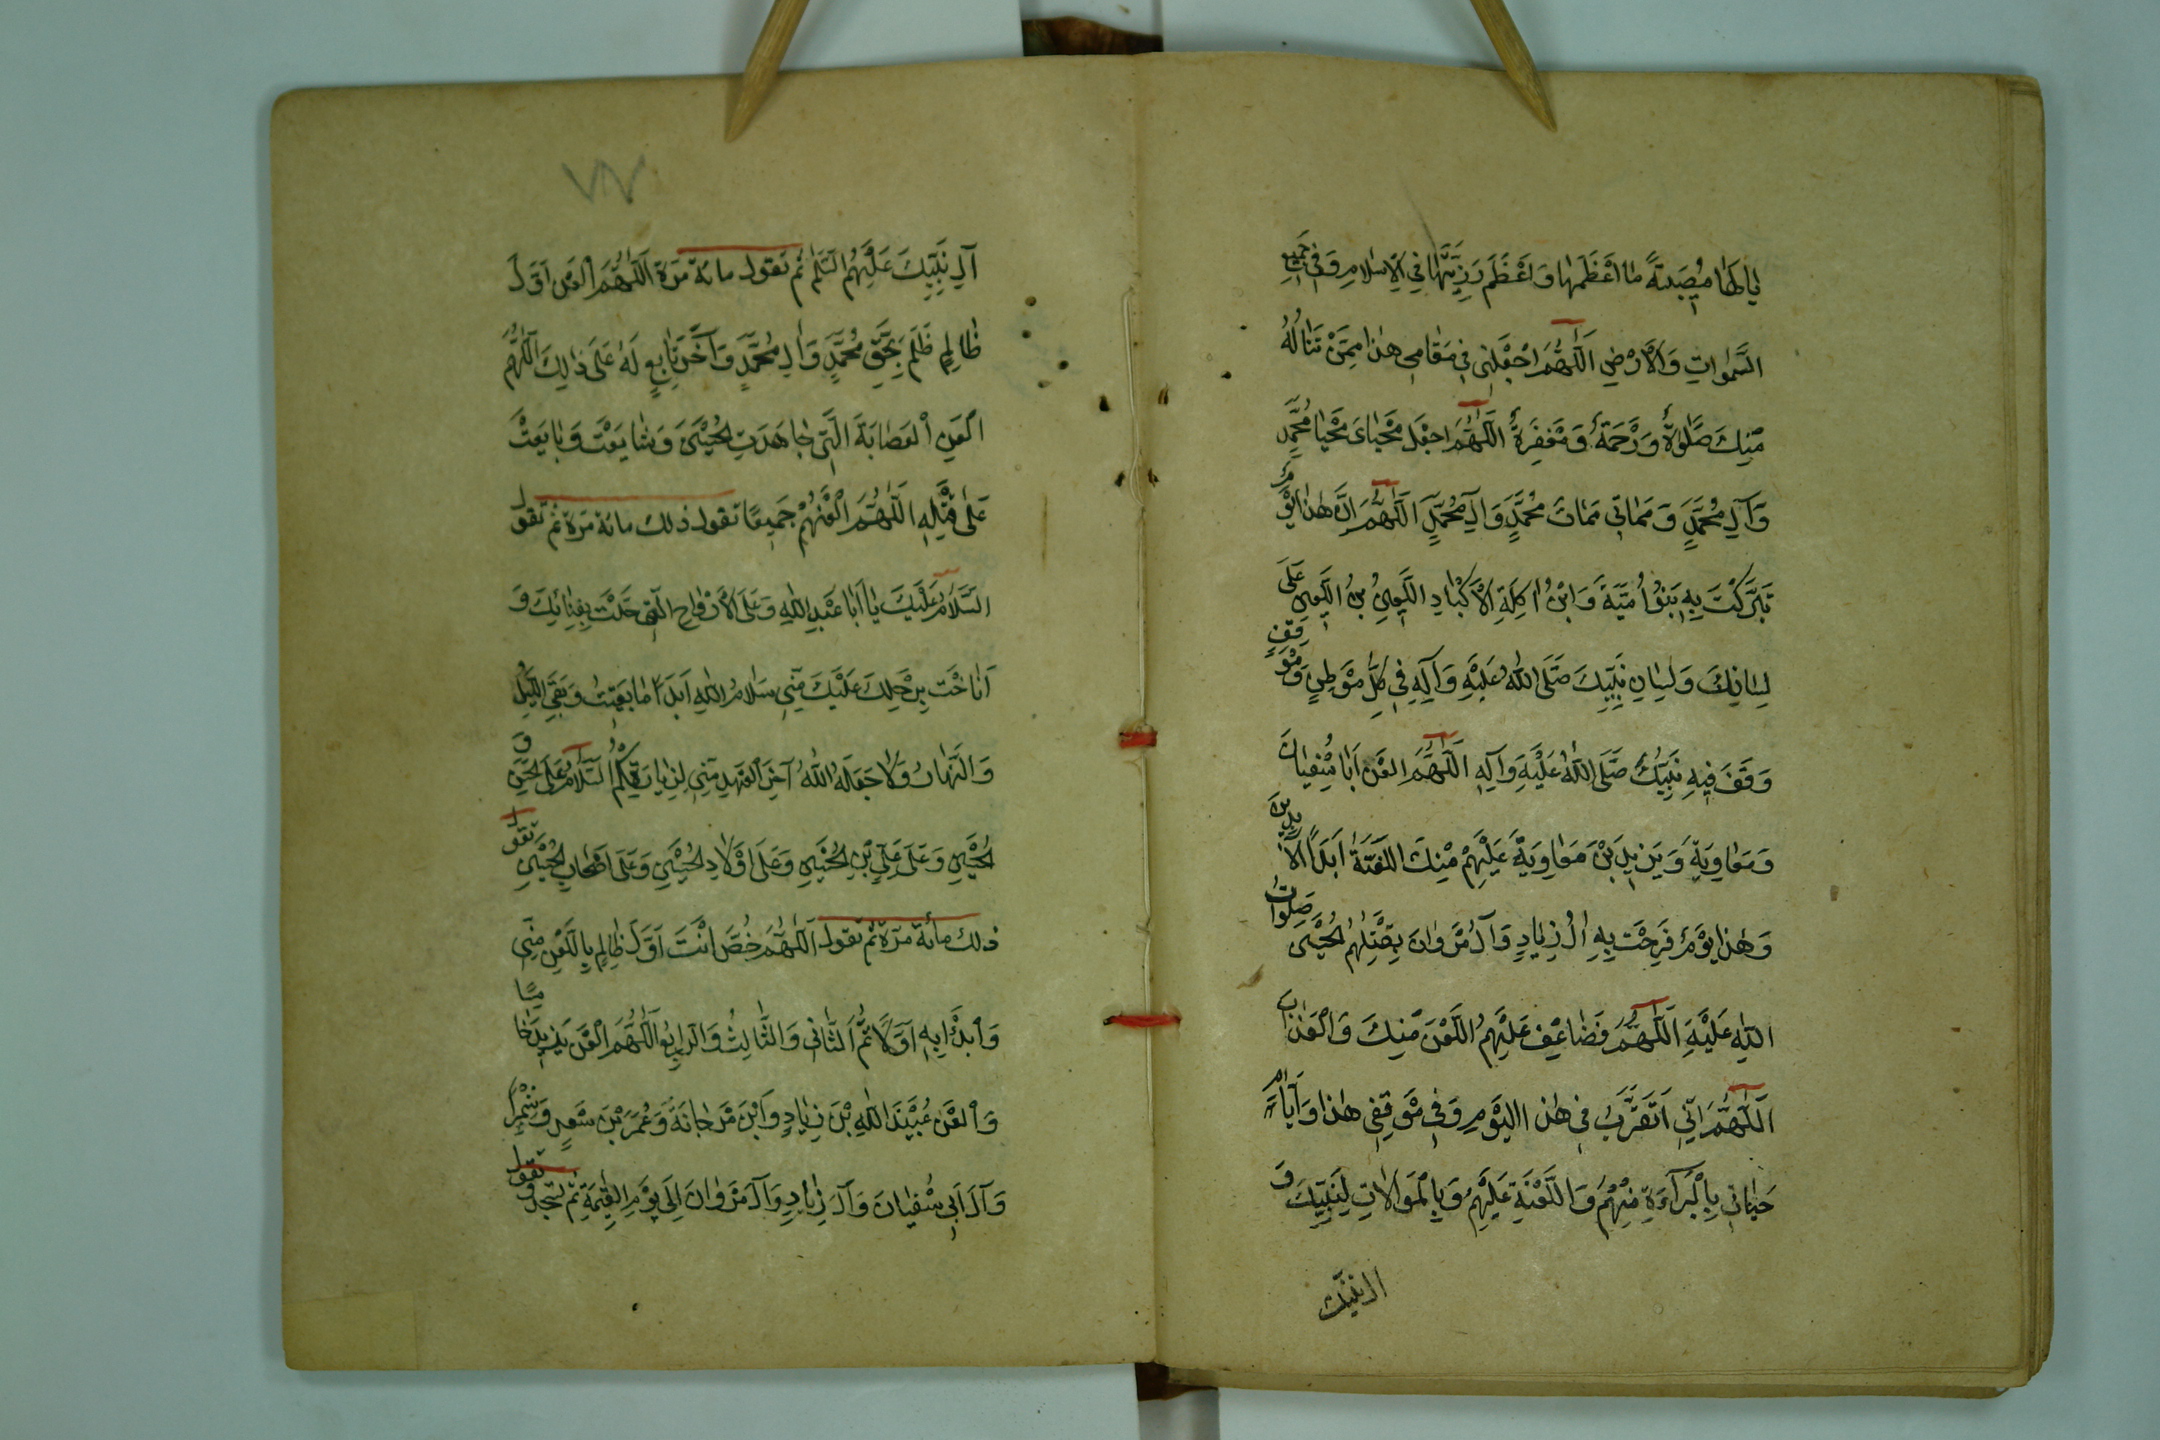 يالها مُصيبَةً ما اَعْظَمَها وَ اَعْظَمَ رَزِيَّتَها فِي الاِسْلامِ وَ في جَميعِ
السَّمواتِ وَالْاَرْضِ اَللّهُمَّ اجْعَلْني في مَقامي هذا مِمَّنْ تَنالُهُ
مِنْكَ صَلَوةٌ وَ رَحْمَةٌ وَ مَغْفِرَةٌ اَللّهُمَّ اجْعَل مَحْياىَ مَحْيا مُحَمَّدٍ
وَ آلِ مُحَمَّدٍ وَ مَماتي مَماتَ مُحَمَّدٍ وَ الِ مُحَمَّدٍ اَللّهُمَّ اِنَّ هذا يَوْمٌ
تَبَرَّكَتْ بِهِ بَنُو اُمَيَّةَ وَ ابْنُ اكِلَةِ الْاَكْبادِ اللَّعينُ بْنُ اللَّعينِ عَلى
لِسانِكَ وَ لِسانِ نَبِيِّكَ صَلَّى اللّهُ عَلَيْهِ وَ آلِهِ في كُلِّ مَوْطِنٍ وَ مَوْقِفٍ
وَقَفَ فيهِ نَبِيُّكَ صَلَّى اللّهُ عَلَيْهِ وَ آلِهِ اَللّهُمَّ الْعَنْ اَبا سُفيانَ
وَ مَعاوِيَةَ وَ يَزيدَ بْنَ مَعاوِيَةَ عَلَيْهِمْ مِنْكَ اللَّعْنَةُ اَبَدَ الْابِدينَ
وَ هذا يَوْمٌ فَرِحَتْ بِهِ الُ زِيادٍ وَ آلُ مَرْوانَ بِقَتْلِهُمُ الْحُسَيْنَ صَلَواتُ
اللّهِ عَلَيْهِ اَللّهُمَّ فَضاعِفْ عَلَيْهِمُ اللَّعْنَ مِنْكَ وَ الْعَذابَ
اَللّهُمَّ اِنّي اَتَقَرَّبُ في هذا الْيَوْمِ وَ في مَوْقِفي هذا وَ اَيّامِ
حَياتي بِالْبَراءَةِ مِنْهُمْ وَ اللَّعْنَةِ عَلَيْهِمْ وَ بِالْمَوالاتِ لِنَبِيِّكَ وَ
ال نبيك
٧٧
آلِ نَبِيِّكَ عَلَيْهِمُ السَّلام ثم تقول مائة مرّة اَللّهُمَّ الْعَنْ اَوَّلَ
ظالِمٍ ظَلَمَ بِحَقِّ مُحَمَّدٍ وَ الِ مُحَمَّدٍ وَ آخَرَ تابِعٍ لَهُ عَلى ذلِكَ اَللّهُمَّ
الْعَنِ الْعَصابَةَ الَّتي جاهَدَتِ الْحُسَيْنَ وَ شايَعَتْ وَ بايَعَتْ
عَلى قَتْلِهِ اَللّهُمَّ الْعَنْهُمْ جَميعًا تقول ذلك مائة مرّة ثم تقول
السَّلامُ عَلَيْكَ يا اَبا عَبْدِ اللّهِ وَ عَلَى الْاَرْواحِ الَّتي حَلَّتْ بِفِنائِكَ وَ
اَناخَتْ بِرَحْلِكَ عَلَيْكَ مِنّي سَلامُ اللّهِ اَبَدًا ما بَقيتُ وَ بَقِيَ اللَّيْلُ
وَ النَّهارُ وَ لا جَعَلَهُ اللّهُ آخِرَ الْعَهْدِ مِنّي لِزِيارَتِكُمْ اَلسَّلامُ عَلَى
الْحُسَيْنِ وَ عَلى عَلِيِّ بْنِ الْحُسَيْنِ وَ عَلى اَوْلادِ الْحُسَيْنِ وَ عَلى اَصْحابِ الْحُسَيْنِ تقول
ذلك مائة مرّة ثم تقول اَللّهُمَّ خُصَّ اَنْتَ اَوَّلَ ظالِمٍ بِاللَّعْنِ مِنّي
وَ ابْدَأْ بِهِ اَوَّلًا ثُمَّ الثّاني وَ الثّالِثُ وَ الرّابِعُ اَللّهُمَّ الْعَنْ يَزيدَ خامِسًا
وَ الْعَنْ عُبَيْدَ اللّهِ بْنَ زِيادٍ وَ ابْنَ مَرْجانَةَ وَ عُمَرَ بْنَ سَعْدٍ وَ شِمْرًا
وَ آلَ اَبي سُفْيانَ وَ آلَ زِيادٍ وَ آلَ مَرْوانَ اِلى يَوْمِ الْقِيمَةِ ثم تسجد و تقول